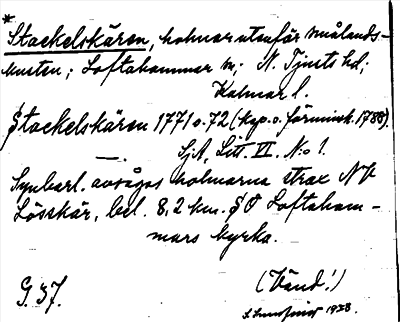 *
Stackelskären, holmar utanför Smålands-
kusten; Loftahammar sn; N. Tjusts hd;
Kalmar l.
Stackelskären 1771 o. 72 (kop. o. förminsk. 1788).
SjA, Litt. VI. N:o 1.
Synbarl. avsågos holmarna strax NV
Lösskär, bel. 8,2 km. SO Loftaham-
mars kyrka.
G. 37.
(Vänd!)
1928.